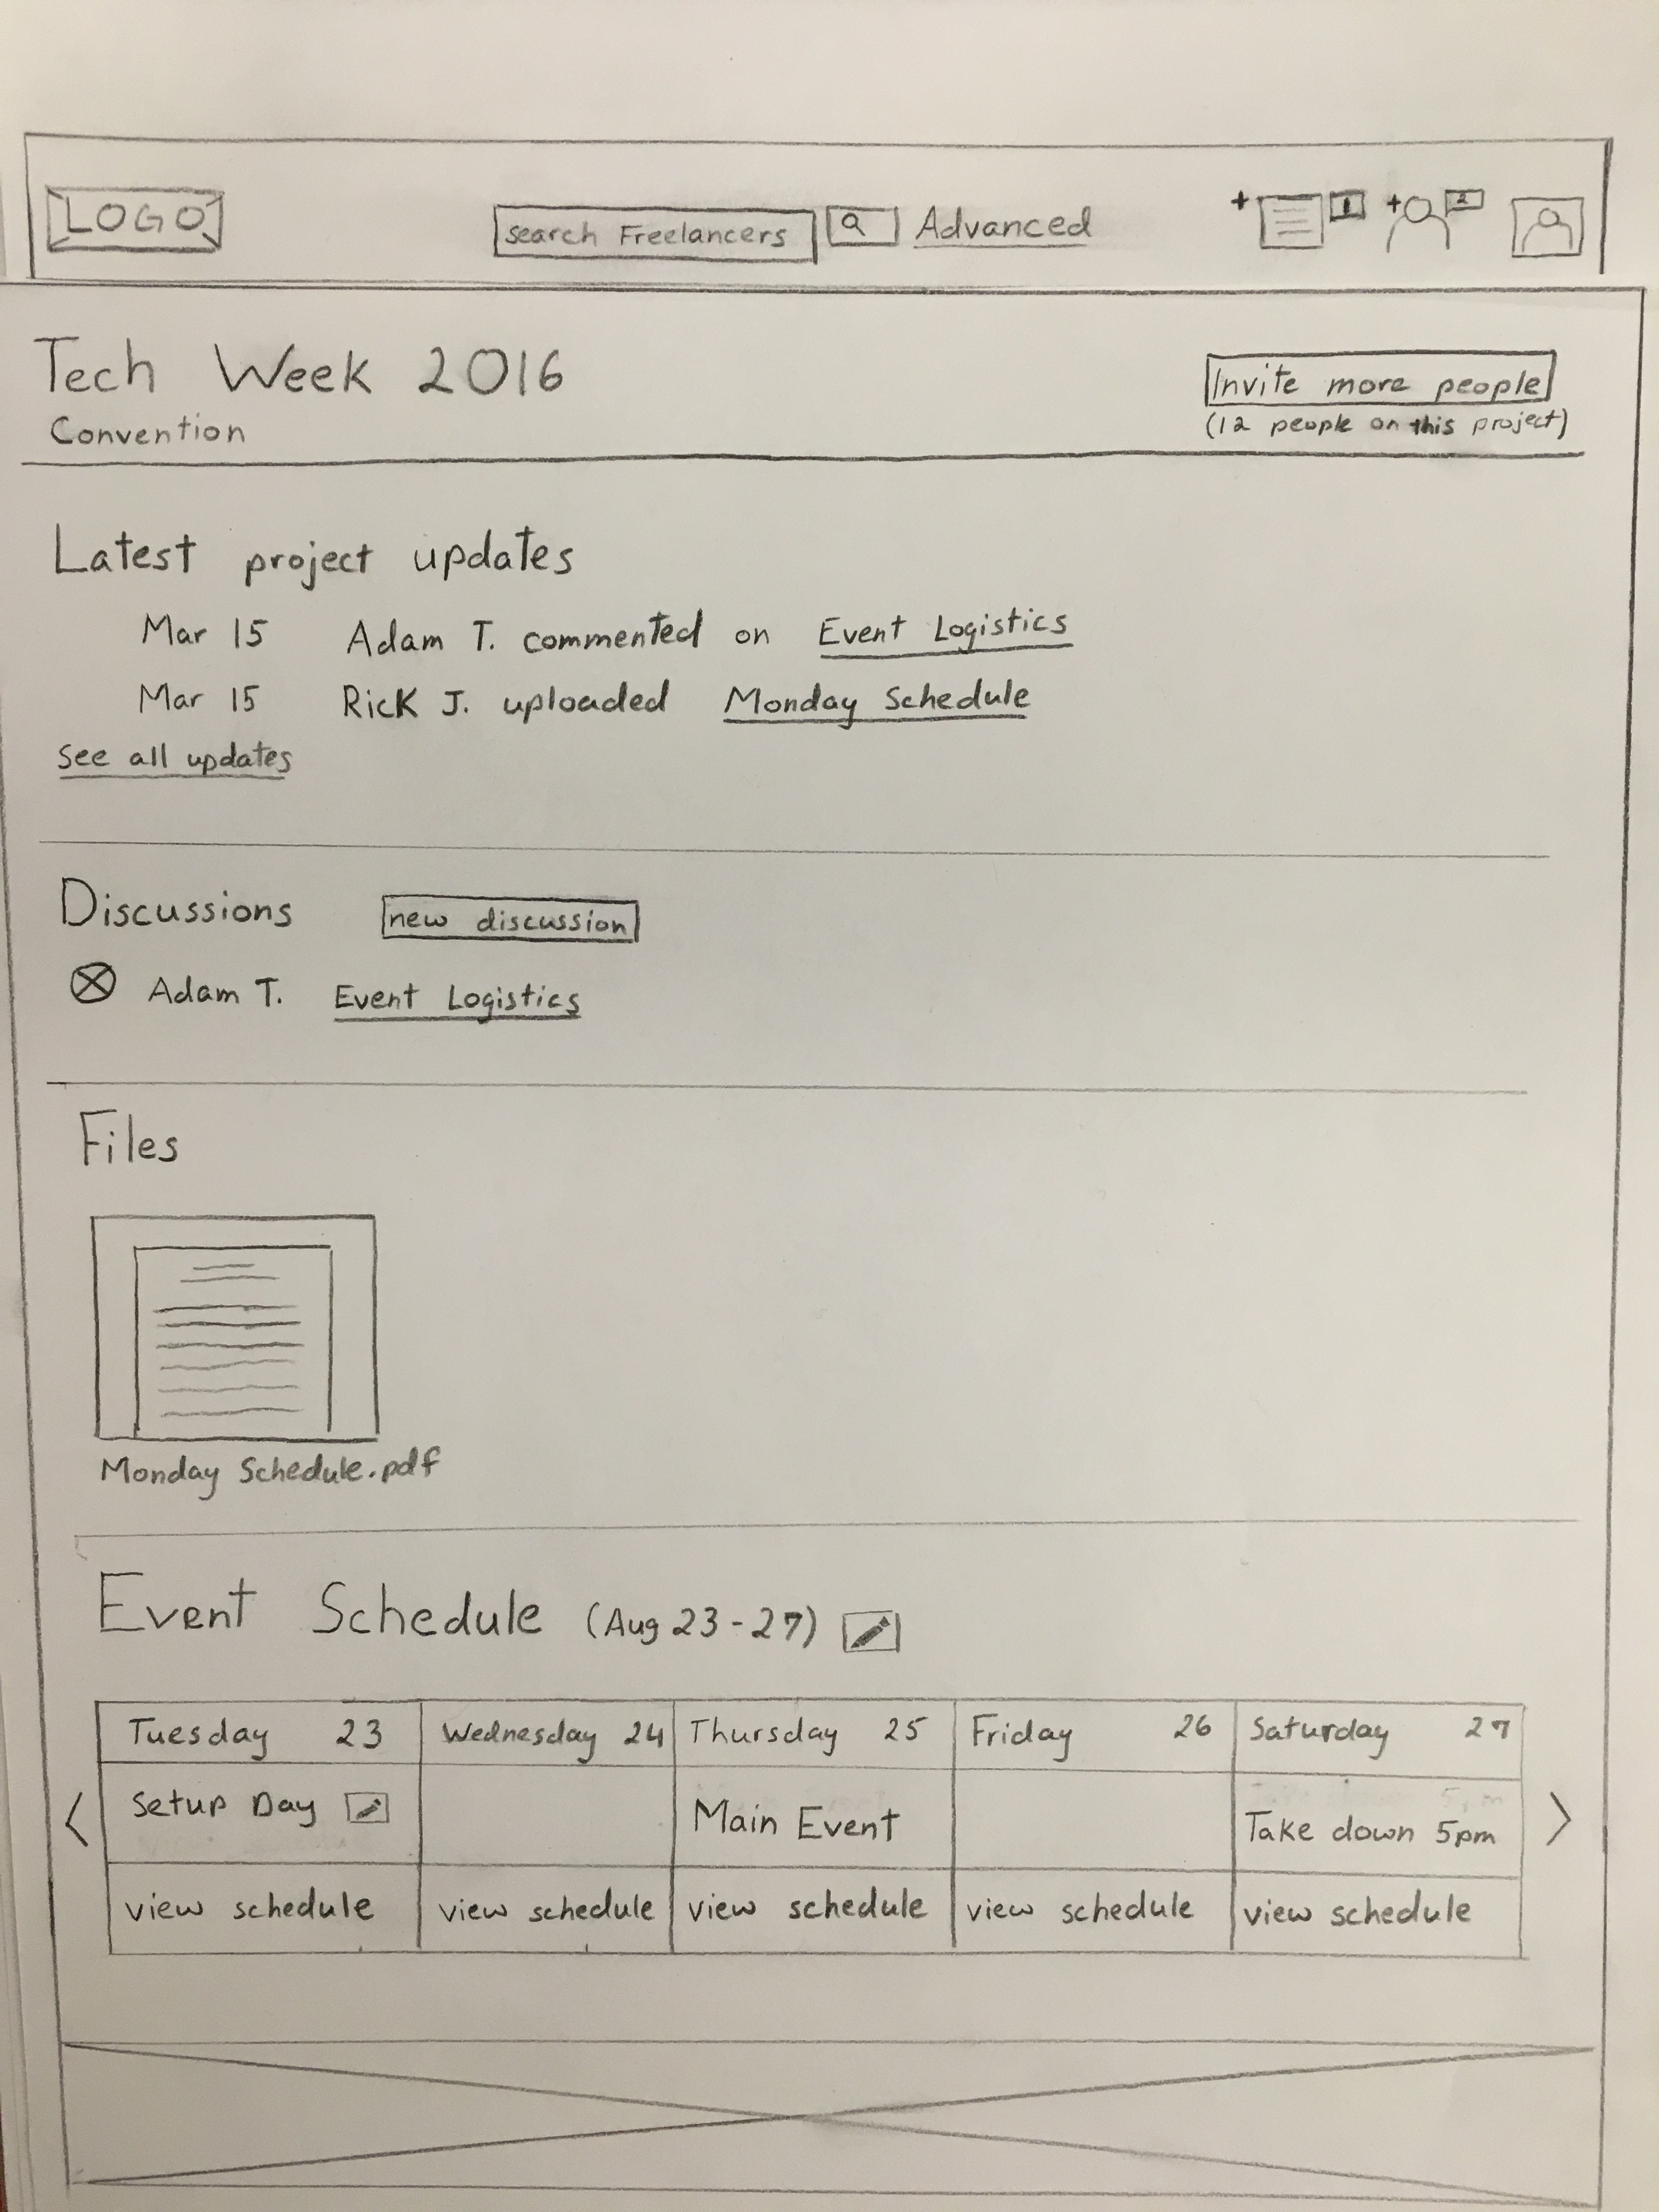 LOGO search Freelancers Advanced + 1 + 2
Tech Week 2016 Invite more people
Convention (12 people on this project)
Latest project updates
Mar 15 Adam T. commented on Event Logistics
Mar 15 Rick J. uploaded Monday Schedule
see all updates
Discussions new discussion
Adam T. Event Logistics
Files
Monday Schedule.pdf
Event Schedule (Aug 23-27)
Tuesday 23 Wednesday 24 Thursday 25 Friday 26 Saturday 27
< Setup Day Main Event Take down 5pm >
view schedule view schedule view schedule view schedule view schedule